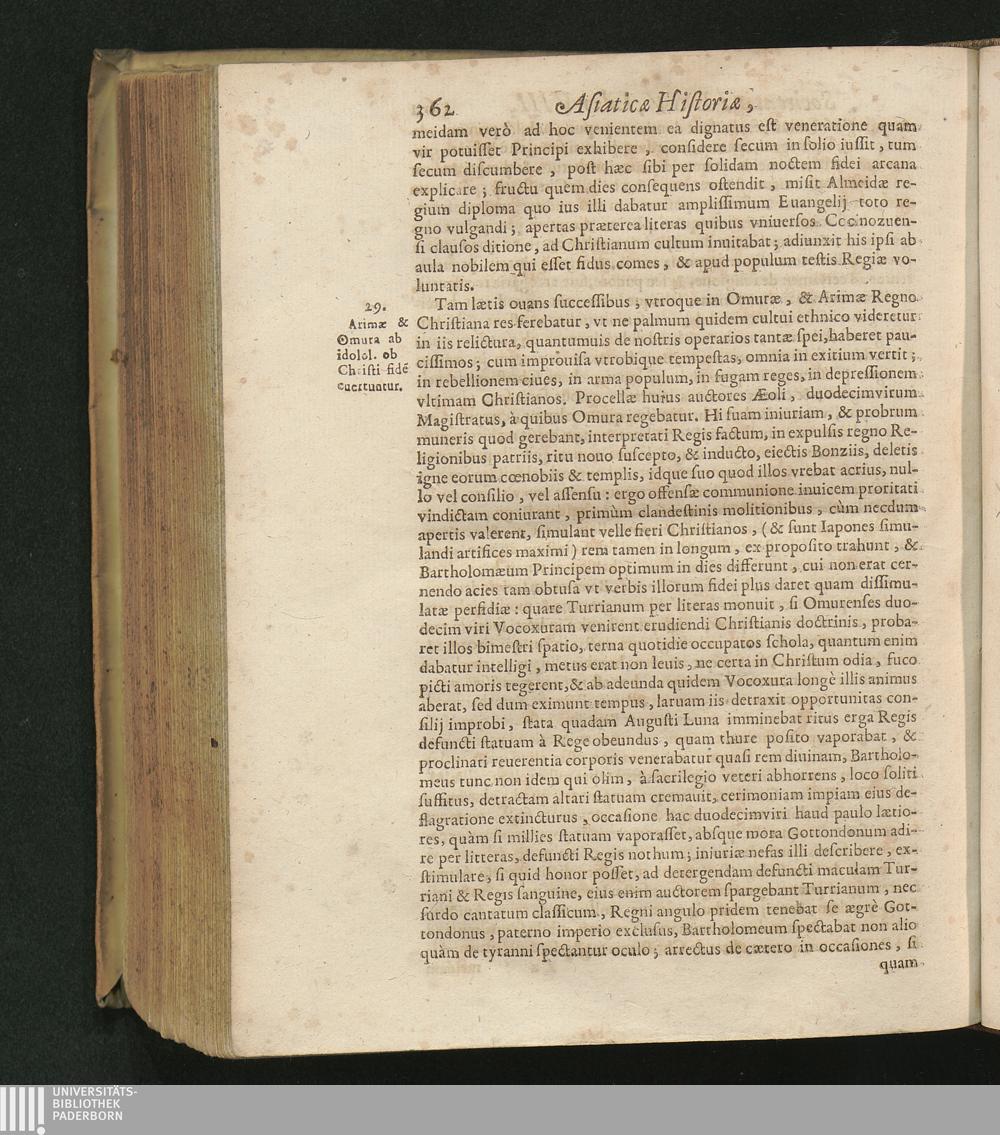 362 Asiaticæ Historiæ,
meidam verò ad hoc venientem ea dignatus est veneratione quam
vir potuisset Principi exhibere, considere secum in solio iussit, tum
secum discumbere, post hæc sibi per solidam noctem fidei arcana
explicare; fructu quem dies consequens ostendit, misit Almeidæ re-
gium diploma quo ius illi dabatur amplissimum Euangelij toto re-
gno vulgandi; apertas præterea literas quibus vniuersos Cocinozuen-
si clausos ditione, ad Christianum cultum inuitabat; adiunxit his ipsi ab
aula nobilem qui esset fidus comes, & apud populum testis Regiæ vo-
luntatis.
29.
Arimæ &
Omura ab
idolol. ob
Christi fidē
euertuntur.
Tam lætis ouans successibus; vtroque in Omuræ, & Arimæ Regno
Christiana res ferebatur, vt ne palmum quidem cultui ethnico videretur
in iis relictura, quantumuis de nostris operarios tantæ spei, haberet pau-
cissimos; cum improuisa vtrobique tempestas, omnia in exitium vertit;
in rebellionem ciues, in arma populum, in fugam reges, in depressionem
vltimam Christianos. Procellæ huius auctores Æoli, duodecimvirum
Magistratus, à quibus Omura regebatur. Hi suam iniuriam, & probrum
muneris quod gerebant, interpretati Regis factum, in expulsis regno Re-
ligionibus patriis, ritu nouo suscepto, & inducto, eiectis Bonziis, deletis
igne eorum cœnobiis & templis, idque suo quod illos vrebat acrius, nul-
lo vel consilio, vel assensu: ergo offensæ communione inuicem proritati
vindictam coniurant, primùm clandestinis molitionibus, cùm necdum
apertis valerent, simulant velle fieri Christianos, (& sunt Iapones simu-
landi artifices maximi) rem tamen in longum, ex proposito trahunt, &
Bartholomæum Principem optimum in dies differunt, cui non erat cer-
nendo acies tam obtusa vt verbis illorum fidei plus daret quam dissimu-
latæ perfidiæ: quare Turrianum per literas monuit, si Omurenses duo-
decim viri Vocoxuram venirent erudiendi Christianis doctrinis, proba-
ret illos bimestri spatio, terna quotidie occupatos schola, quantum enim
dabatur intelligi, metus erat non leuis, ne certa in Christum odia, fuco
picti amoris tegerent, & ab adeunda quidem Vocoxura longè illis animus
aberat, sed dum eximunt tempus, laruam iis detraxit opportunitas con-
silij improbi, stata quadam Augusti Luna imminebat ritus erga Regis
defuncti statuam à Rege obeundus, quam thure posito vaporabat, &
proclinati reuerentia corporis venerabatur quasi rem diuinam, Bartholo-
meus tunc non idem qui olim, à sacrilegio veteri abhorrens, loco soliti
suffitus, detractam altari statuam cremauit, cerimoniam impiam eius de-
flagratione extincturus, occasione hac duodecimviri haud paulo lætio-
res, quàm si millies statuam vaporasset, absque mora Gottondonum adi-
re per litteras, defuncti Regis nothum; iniuriæ nefas illi describere, ex-
stimulare, si quid honor posset, ad detergendam defuncti maculam Tur-
riani & Regis sanguine, eius enim auctorem spargebant Turrianum, nec
surdo cantatum classicum, Regni angulo pridem tenebat se ægrè Got-
tondonus, paterno imperio exclusus, Bartholomeum spectabat non alio
quàm de tyranni spectantur oculo; arrectus de cætero in occasiones, si
quam
UNIVERSITÄTS-
BIBLIOTHEK
PADERBORN